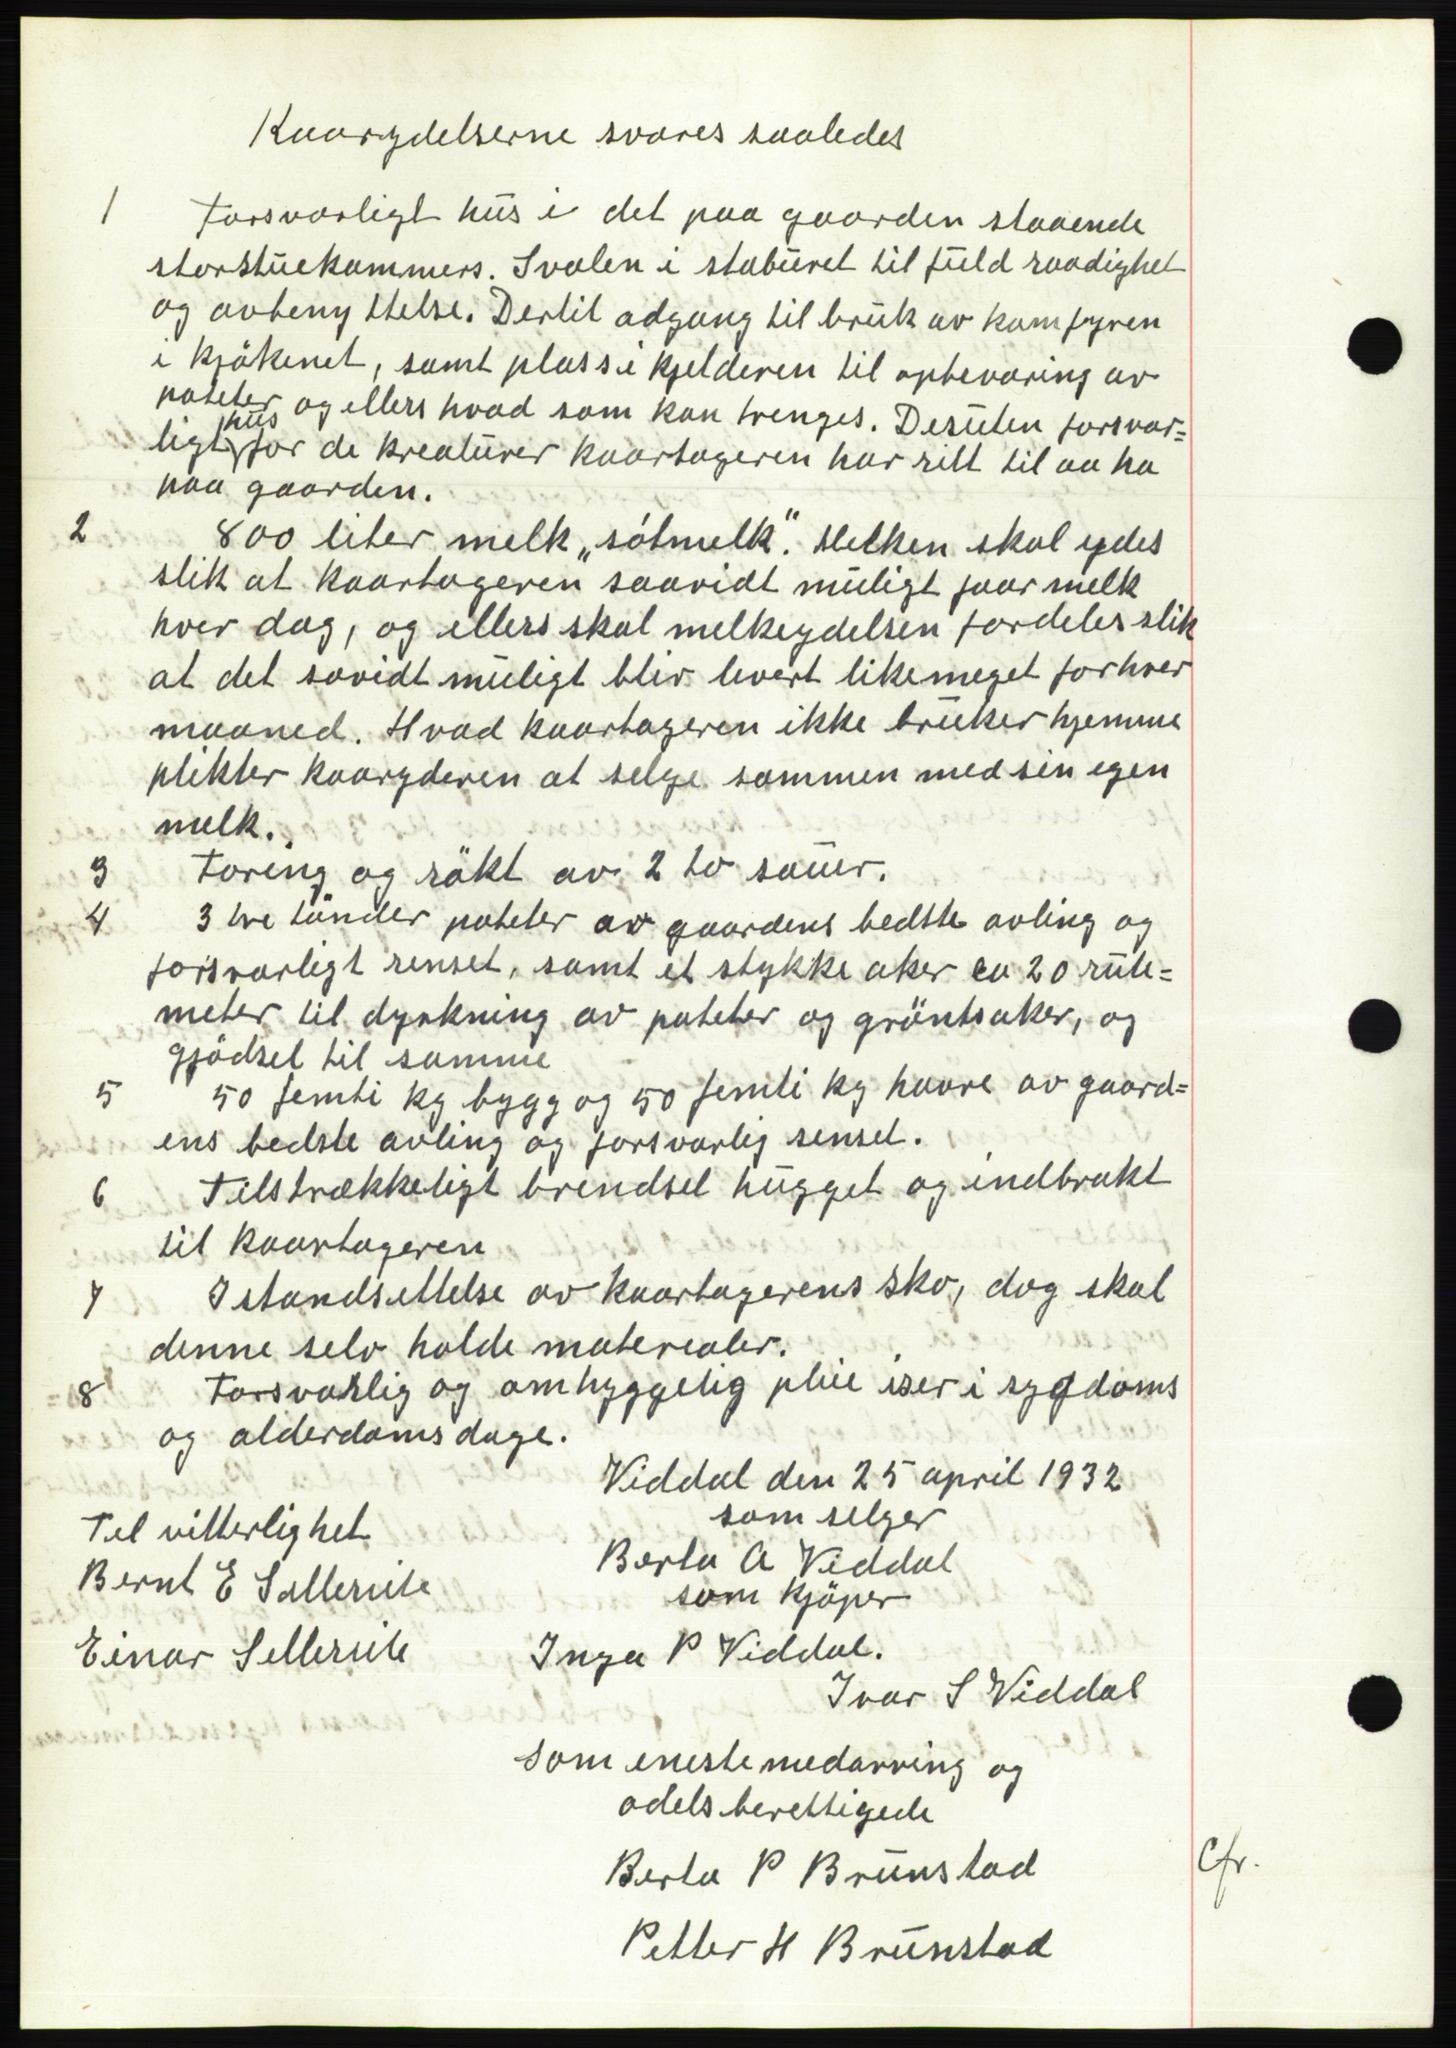 Kaarydelserne svares saaledes
1 Forsvarligt hus i det paa gaarden staaende
storstuekammers. Svalen i staburet til fuld raadighet
og avbenyttelse. Dertil adgang til bruk av komfyren
i kjökenet, samt plass i kjelderen til opbevaring av
poteter og ellers hvad som kan trenges. Desuten forsvar=
ligt hus for de kreaturer kaartageren har rett til aa ha
paa gaarden.
2 800 liter melk „sötmelk". Melken skal ydes
slik at kaartageren saavidt muligt faar melk
hver dag, og ellers skal melkeydelsen fordeles slik
at det savidt muligt blir levert likemeget for hver
maaned. Hvad kaartageren ikke bruker hjemme
plikter kaaryderen at selge sammen med sin egen
melk.
3 Foring og rökt av 2 to sauer.
4 3 tre tönder poteter av gaardens bedste avling og
forsvarligt renset, samt et stykke aker ca 20 rute=
meter til dyrkning av poteter og gröntsaker, og
gjödsel til samme
5 50 femti kg bygg og 50 femti kg havre av gaard=
ens bedste avling og forsvarlig renset.
6 Tilstrækkeligt brendsel hugget og indbrakt
til kaartageren
7 Istandsettelse av kaartagerens sko, dog skal
denne selv holde materealer.
8 Forsvarlig og omhyggelig pleie iser i sygdoms
og alderdomsdage.
Viddal den 25 april 1932
som selger
Til vitterlighet
Berta A Viddal
Bernt E Sætterite
som kjöper
Einar Setterite
Inga P Viddal.
Ivar S Viddal
som eneste medarving og
odelsberettigede
Berta P Brunstad
Cfr.
Petter H Brunstad